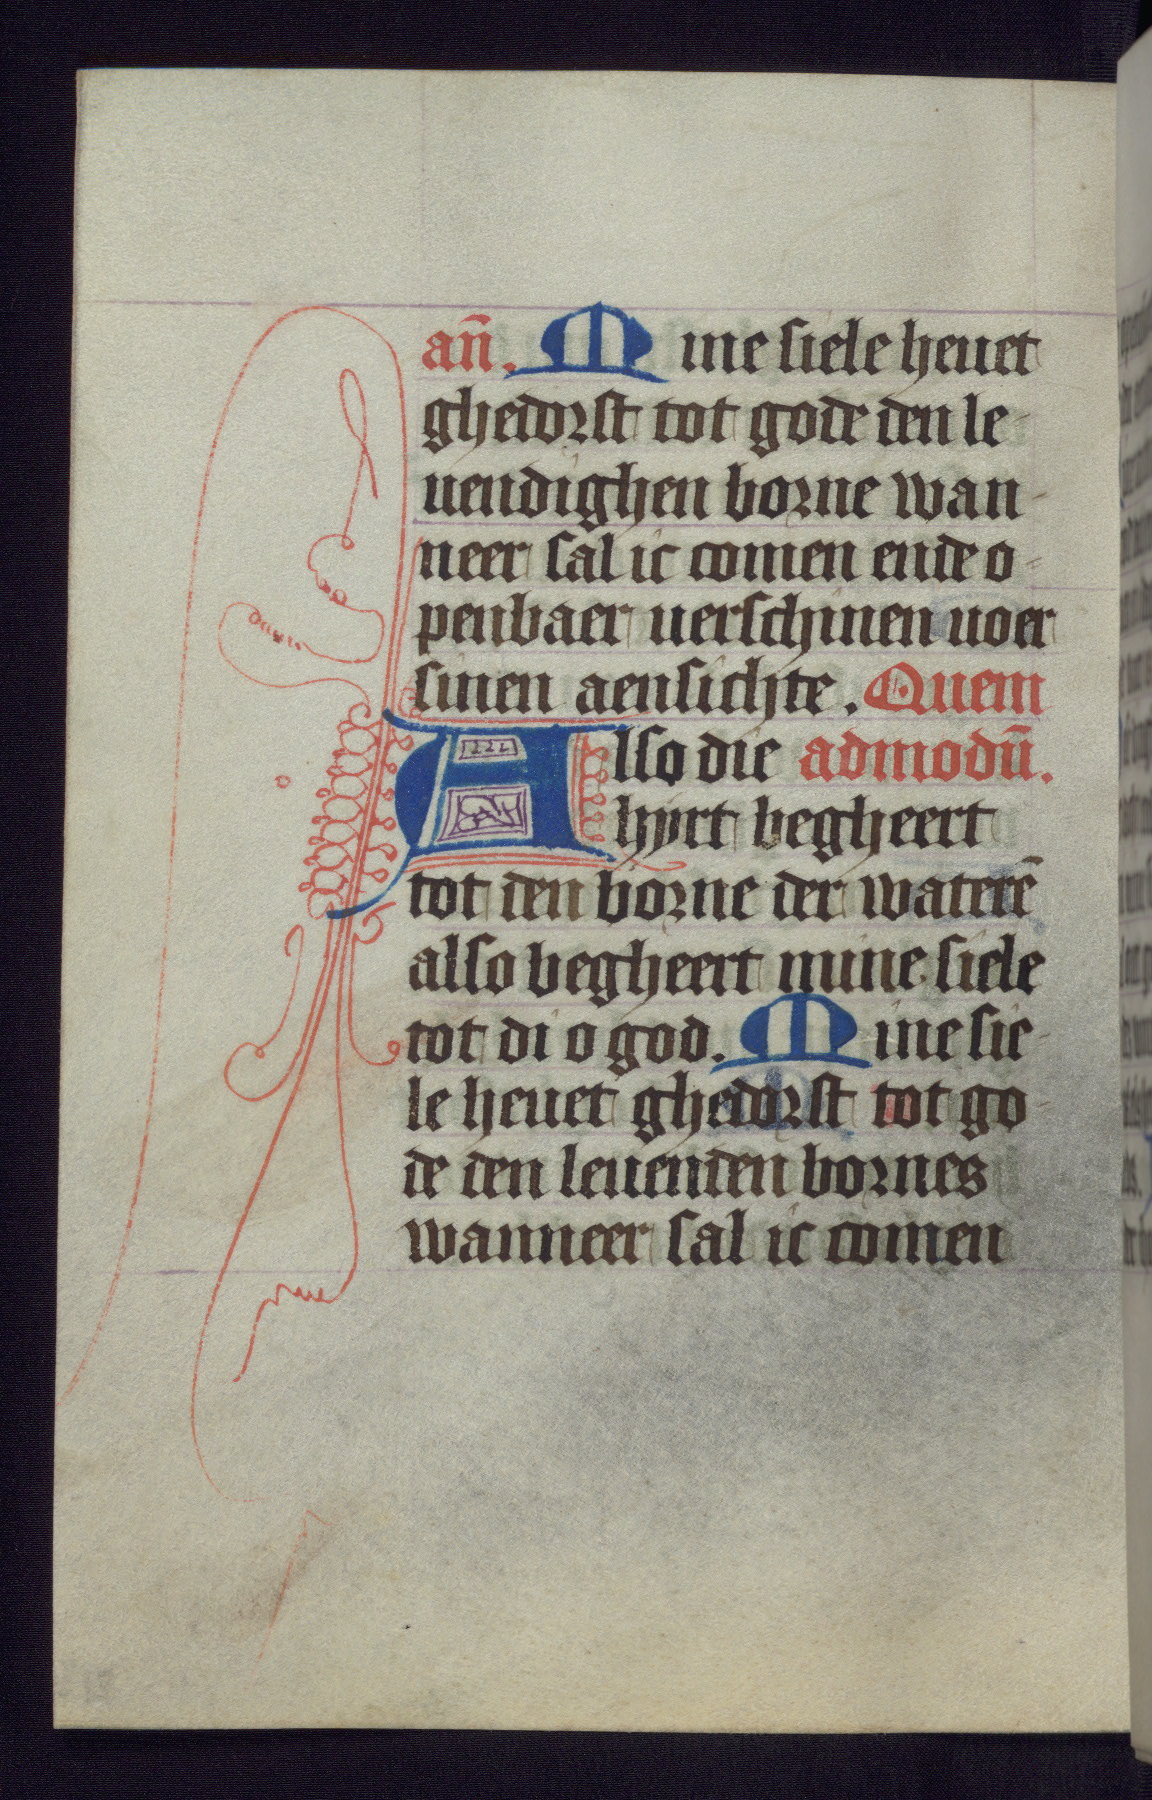 an̄. Mine siele heuet
ghedorst tot gode den le-
uendighen borne wan-
neer sal ic comen ende o-
penbaer uerschinen uoer
sinen aensichte. Quem
Also die admodū.
hyrt begheert
tot den borne der waterē
also begheert mine siele
tot di o god. Mine sie-
le heuet ghedorst tot go-
de den leuenden bornes
wanneer sal ic comen